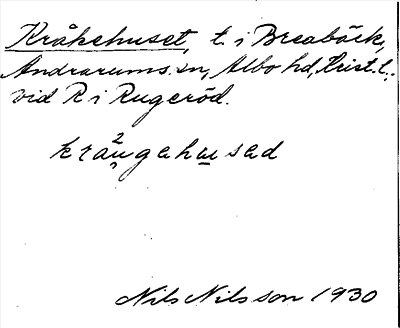 Kråkehuset, t. i Breabäck,
Andrarums sn, Albo hd, Krist. l.;
vid R i Rugeröd.
krä²ngahu̲sad
Nils Nilsson 1930